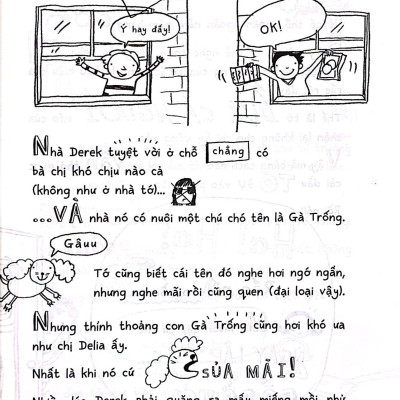 Ý hay đấy!
OK!
Nhà Derek tuyệt vời ở chỗ chẳng có
bà chị khó chịu nào cả
(không như ở nhà tớ)...
...VÀ nhà nó có nuôi một chú chó tên là Gà Trống.
Gâuu
Tớ cũng biết cái tên đó nghe hơi ngớ ngẩn,
nhưng nghe mãi rồi cũng quen (đại loại vậy).
Nhưng thính thoảng con Gà Trống cũng hơi khó ưa
như chị Delia ấy.
Nhất là khi nó cứ SỦA MÃI!